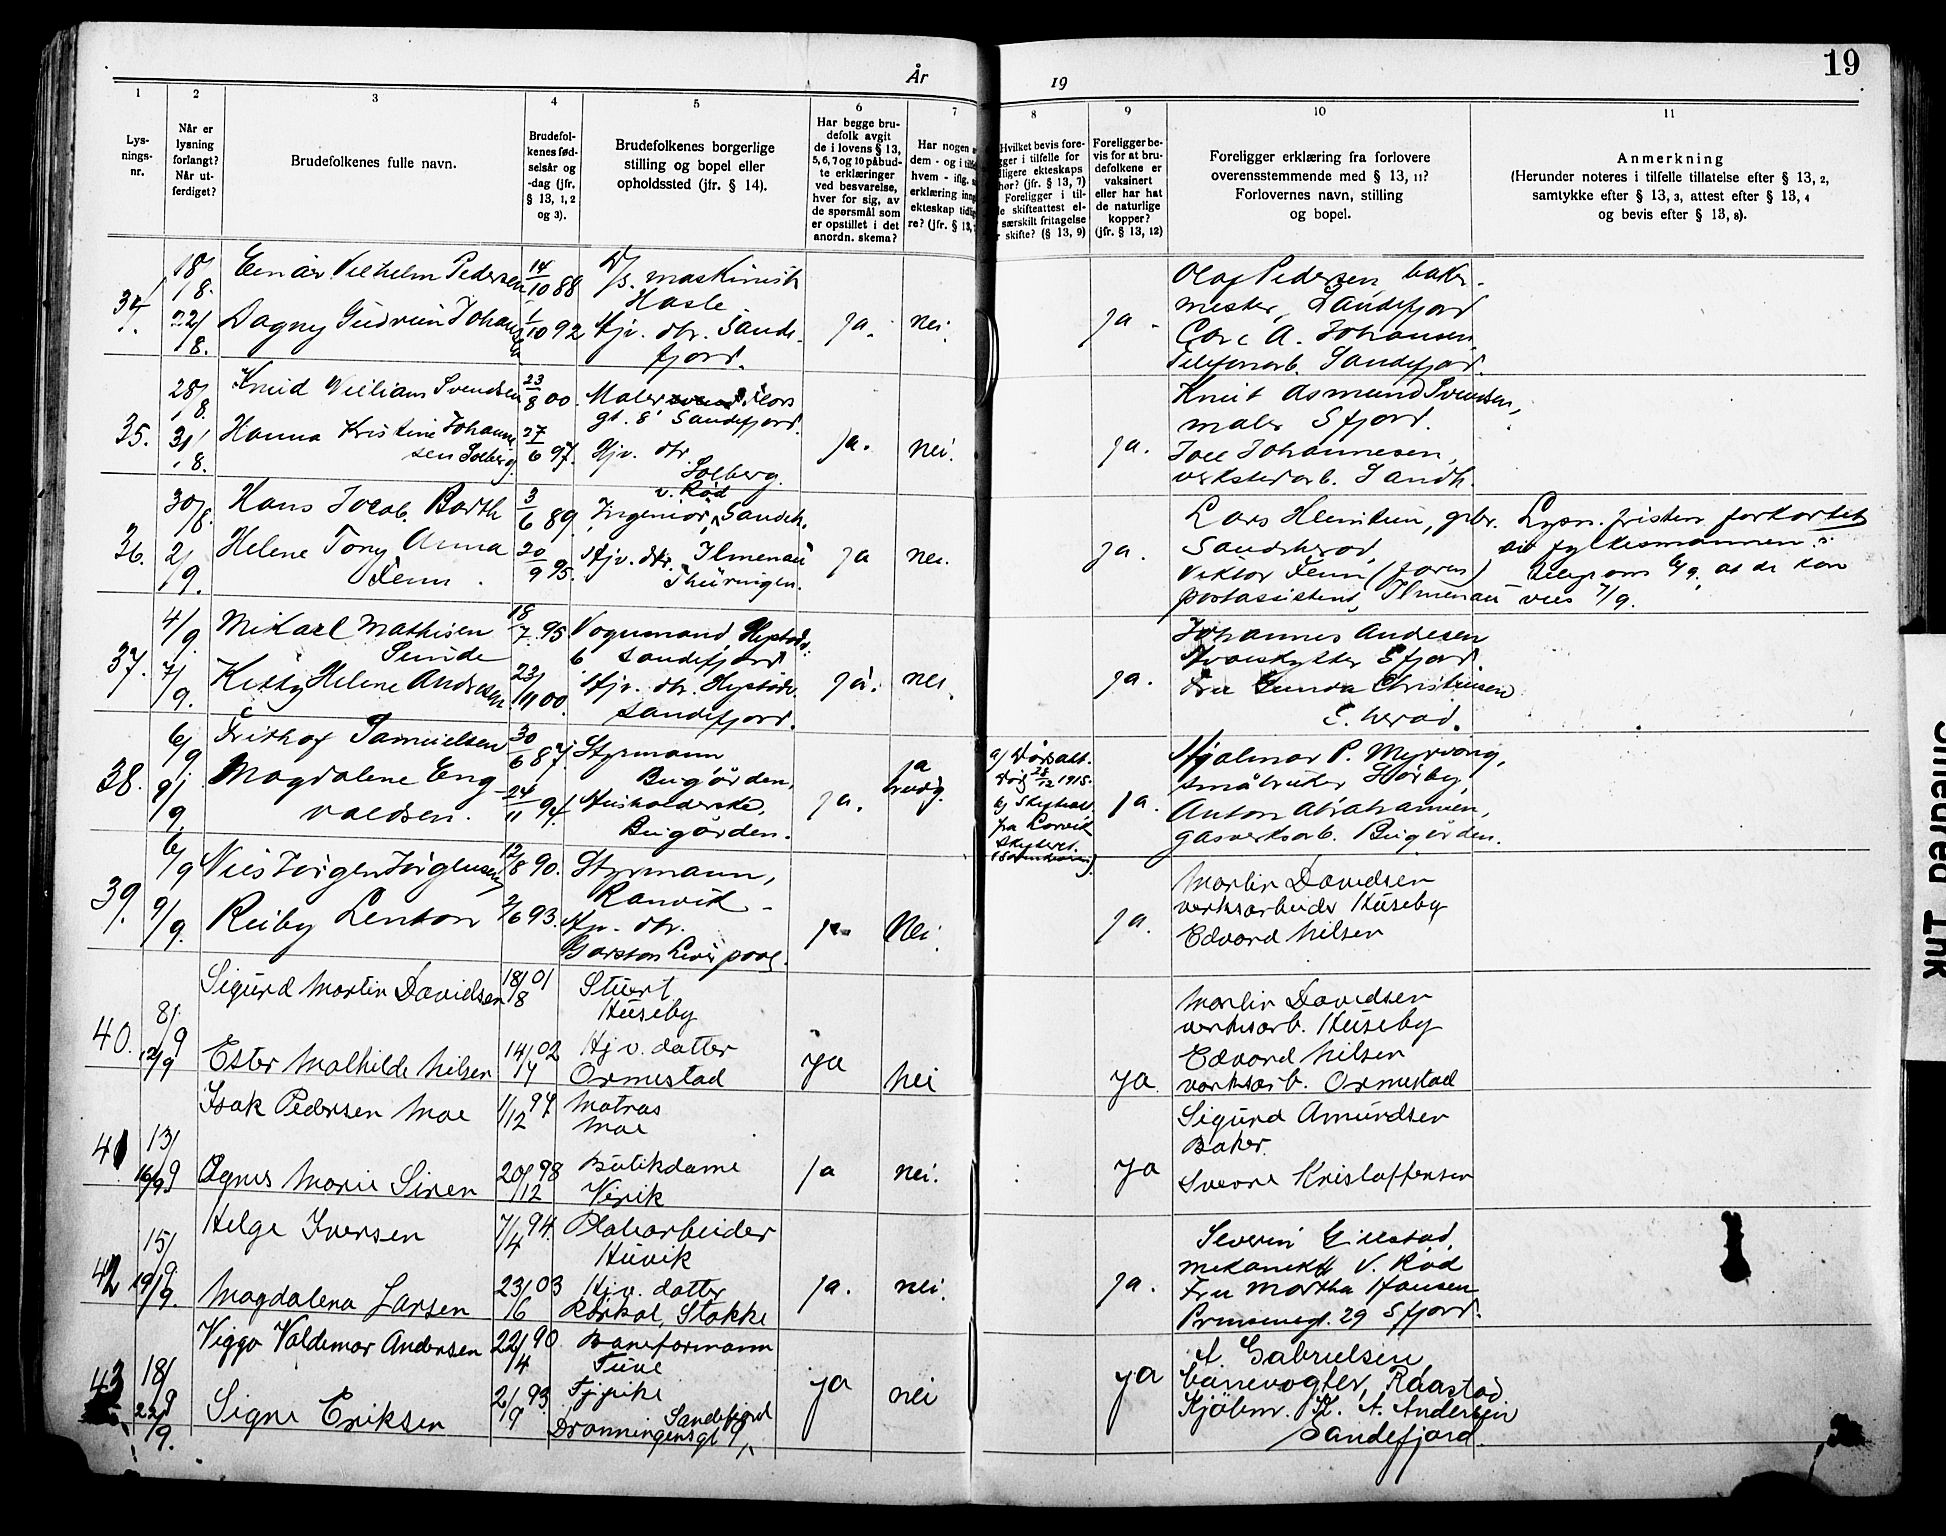 19
År
19
1
2
3
4
5
6
7
8
9
10
11
Lys-
nings-
nr.
Når er
lysning
forlangt?
Når ut-
ferdiget?
Brudefolkenes fulle navn.
Brudefol-
kenes fød-
selsår og
-dag (jfr.
§ 13, 1, 2
og 3).
Brudefolkenes borgerlige
stilling og bopel eller
opholdssted (jfr. § 14).
Har begge bru-
defolk avgit
de i lovens § 13,
5, 6, 7 og 10 påbud-
te erklæringer
ved besvarelse,
hver for sig, av
de spørsmål som
er opstillet i det
anordn. skema?
Har nogen
dem - og i
hvem - iflg.
erklæring
ekteskap
re? (jfr. § 13,
Hvilket bevis fore-
i tilfelle for
ekteskaps
(jfr. § 13, 7)
Foreligger i til-
skifteattest el-
særskilt fritagelse
skifte? (§ 13, 9)
Foreligger be-
vis for at bru-
defolkene er
vaksinert
eller har hat
de naturlige
kopper?
(jfr. § 13, 12)
Foreligger erklæring fra forlovere
overensstemmende med § 13, 11?
Forlovernes navn, stilling
og bopel.
Anmerkning
(Herunder noteres i tilfelle tillatelse efter § 13, 2,
samtykke efter § 13, 3, attest efter § 13, 4
og bevis efter § 13, 8).
34.
18/8.
22/8.
Einar Vilhelm Pedersen
14/10 88
D/S. maskinist
Hasle
Dagny Gudrun Johansen
1/10 92
Hjv. dtr. Sande-
fjord.
ja.
nei.
ja.
Olaf Pedersen, baker-
mester, Sandefjord
Carl A. Johansen,
Telefonarb. Sandefjord.
35.
28/8.
31/8.
Knud William Svendsen
23/8 00.
Maler
gt. 8 Sandefjord.
Hanna Kristine Johanne
sen Solberg
27/6 97.
Hjv. dtr.
Solberg.
ja.
nei.
ja.
Knut Asmund Svendsen,
maler Sfjord.
Joel Johannesen,
verkstedarb. Sandh.
36.
30/8.
2/9.
Hans Jacob Barth
3/6 89.
v. Rød
Ingeniør, Sandeh.
Helene Tony Anna
Fenn.
20/9 95.
Hjv. dtr. Ilmenau
Thüringen.
ja
nei.
ja.
Lars Henriksen, grbr.
Sandeherod,
Viktor Fenn (foren)
postassistent, Ilmenau
Lysn. fristen forkortet
av fylkesmannen i
telegram 6/9, at de kan
vies 7/9.
37.
4/9.
7/9.
Mikael Mathisen
Sunde
18/7. 95
Vognmand, Hystads.
6 Sandefjord
Kitty Helene Andresen
23/11 00.
Hjv. dtr. Hystads.
Sandefjord.
ja.
nei.
ja.
Johannes Andesen
Hvalskytter Sfjord.
Fru Gunda Christensen
S. herad.
38.
6/9
9/9
Frithof Samuelsen
30/6 87.
Styrmann
Bugården,
Magdalene Eng-
valdsen.
24/11 94.
Husholderske,
Bugården.
ja.
ja
a) Dødsatt.
Død 28/12 1915.
b) Skifteatt
fra Larvik
ja.
Hjalmar P. Myrvang,
småbruker Hørby,
Anton Abrahamsen,
gasverksarb. Bugården.
39.
6/9
9/9.
Nils Jørgen Jørgensen
12/8 90.
Styrmann,
Ranvik
Ruby Lenton
2/6 93.
Hjv. dtr.
Garston Liverpool.
ja
Nei.
ja.
Martin Davidsen
verksarbeider Huseby
Edvard Nilsen
40.
8/9
12/9
Sigurd Martin Davidsen
18/8 01
Stuert
Huseby
Ester Mathilde Nilsen
14/7 02
Hjv. datter
Ormestad
ja
nei
ja.
Martin Davidsen
verksarb. Huseby
Edvard Nilsen
verksarb. Ormestad
41
13/9
16/9
Isak Pedersen Moe
1/12 94
Matros
Moe
Agnes Marie Siren
20/12 98
Butikdame
Virik
ja
nei.
ja
Sigurd Amundsen
Baker.
Sverre Kristoffersen
42
15/9.
19/9.
Helge Iversen
7/4 94.
Platearbeider
Huvik
Magdalena Larsen
23/6 03
Hjv. datter
Rørkol, Stokke
ja.
nei.
ja.
Severin Gilestad,
mekanikk V. Rød
Fru Martha Hansen
Prinsensgt. 29 Sfjord.
43
18/9
22/9.
Viggo Valdemar Andersen
22/4 90
Baneformann
Tuve
Signe Eriksen
2/9 93.
Tjpike
Sandefjord
Dronningensgt 9
ja
nei
ja
A. Gabrielsen,
banevogter, Raastad
Kjøbm. K. A. Andersen
Sandefjord.